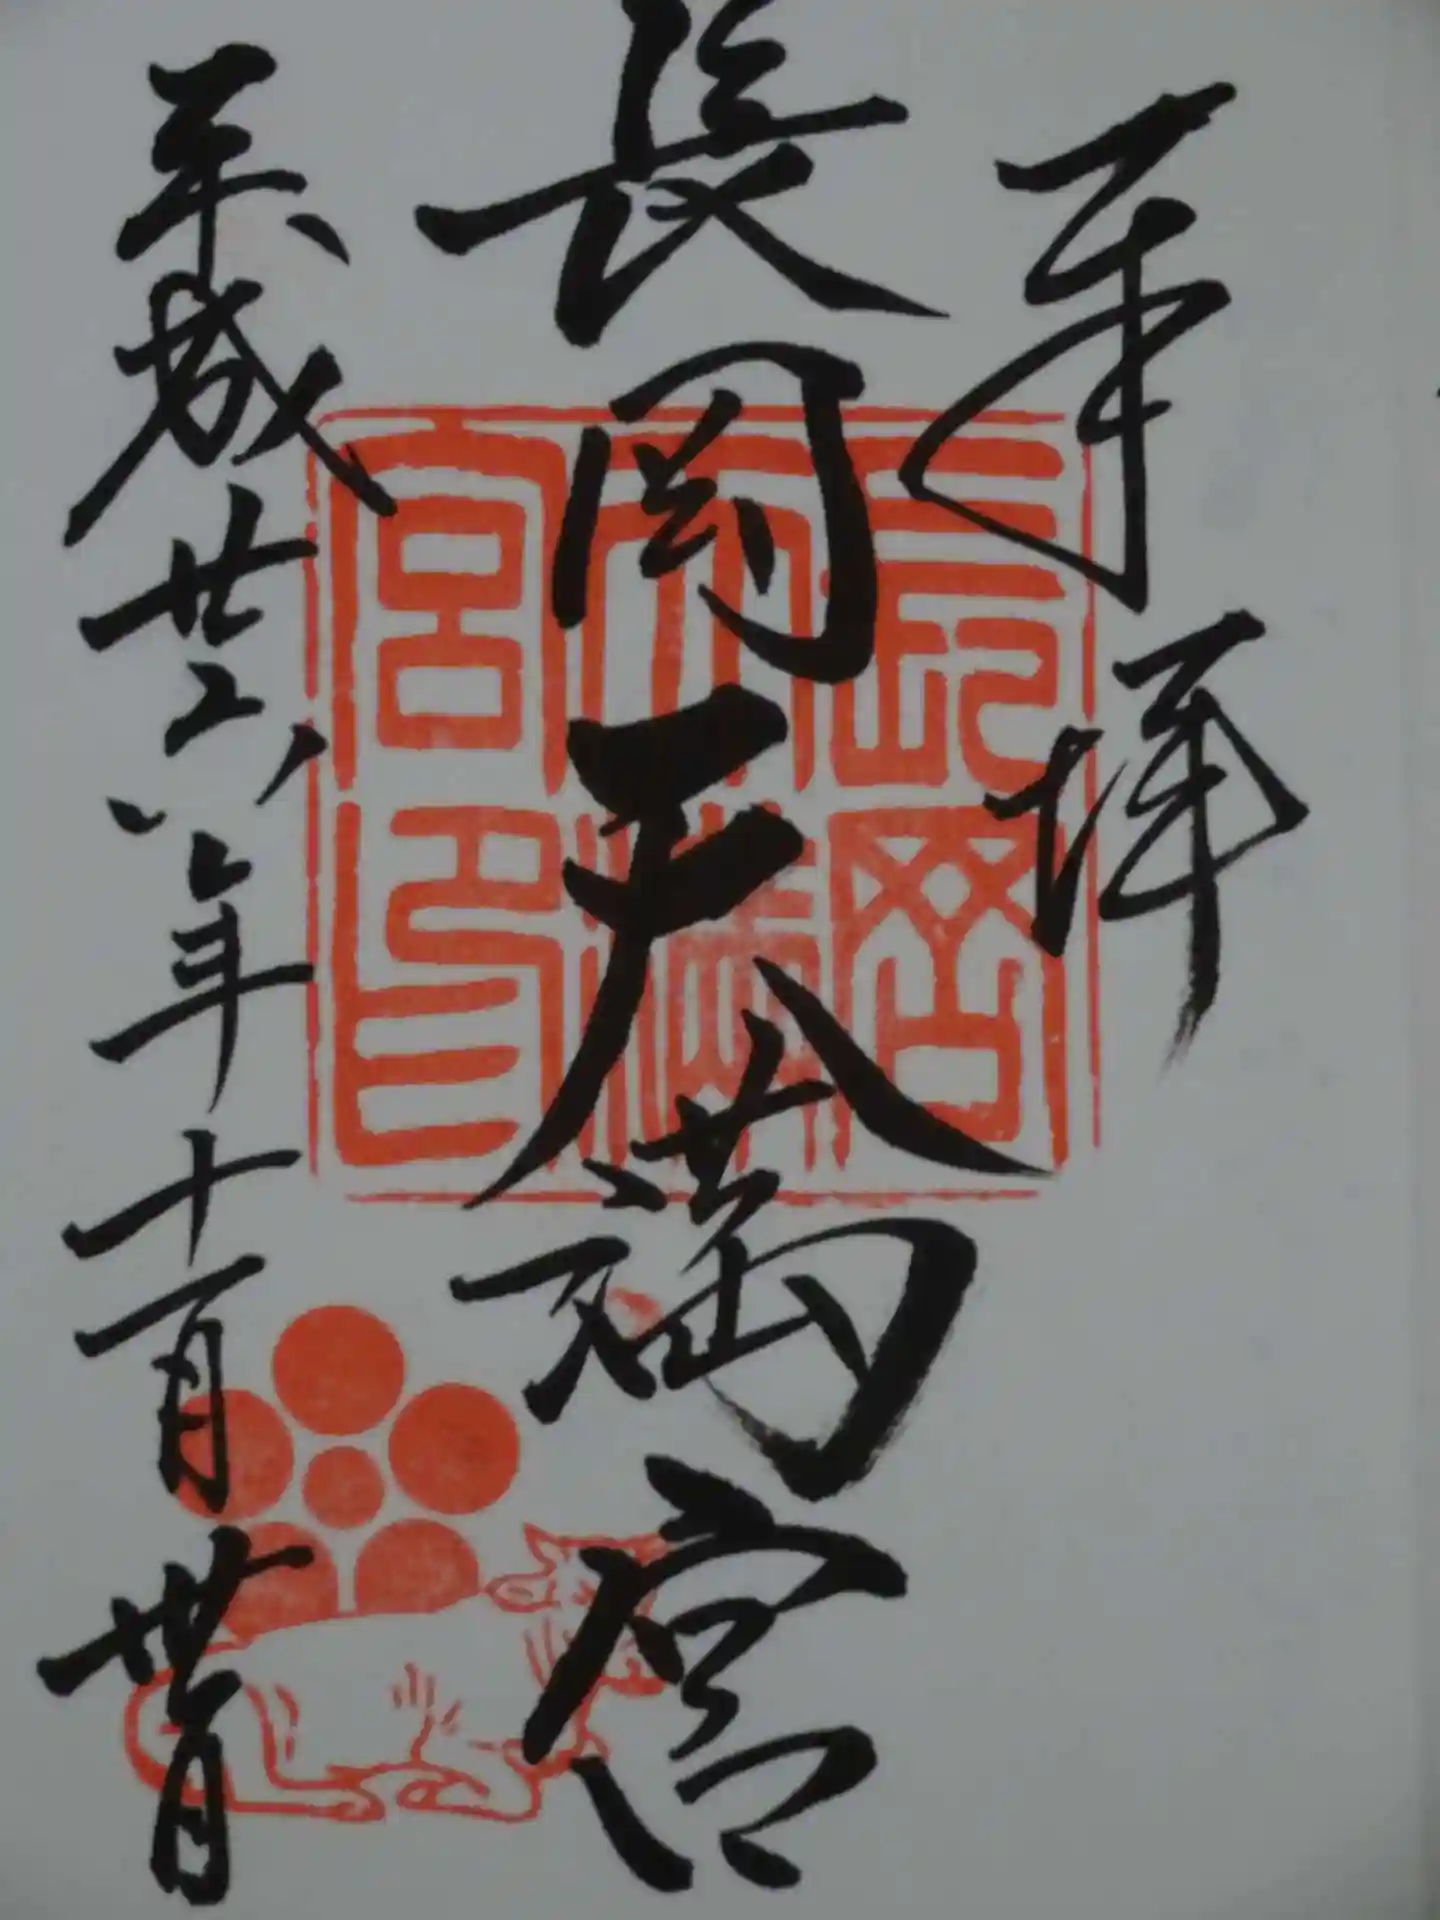 奉拝
長岡天満宮
平成廿六年十一月
長岡
天満
宮印